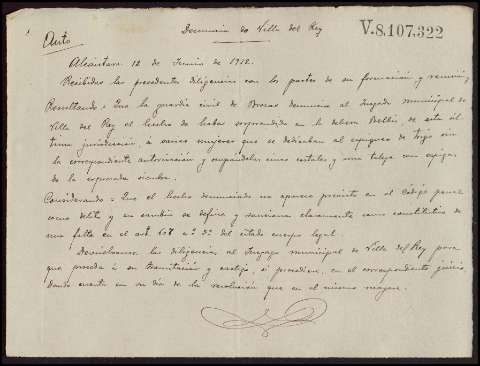 Denuncia de Villa del Rey
V.8,107,322
Auto
Alcántara 12 de Junio de 1912.
Recibidas las precedentes diligencias con los partes de su formación y
Resultando: Que la guardia civil de Brozas denuncia al Juzgado municipal de
Villa del Rey el hecho de haber sorprendido en la dehesa de esta úl-
tima jurisdicción, a varias mujeres que se dedicaban al espigueo de trigo sin
la correspondiente autorización y ocupándolas unos costales y una talega con espigas
de la expresada
Considerando: Que el hecho denunciado no aparece previsto en el Código penal
como delito y en cambio se define y sanciona claramente como constitutivo de
una falta en el art. 617 nº 2º del citado cuerpo legal.
Devuélvanse las diligencias al Juzgado municipal de Villa del Rey para
que proceda á su tramitación y castigo, si procediese, en el correspondiente juicio,
dando cuenta en su día de la resolución que en el mismo